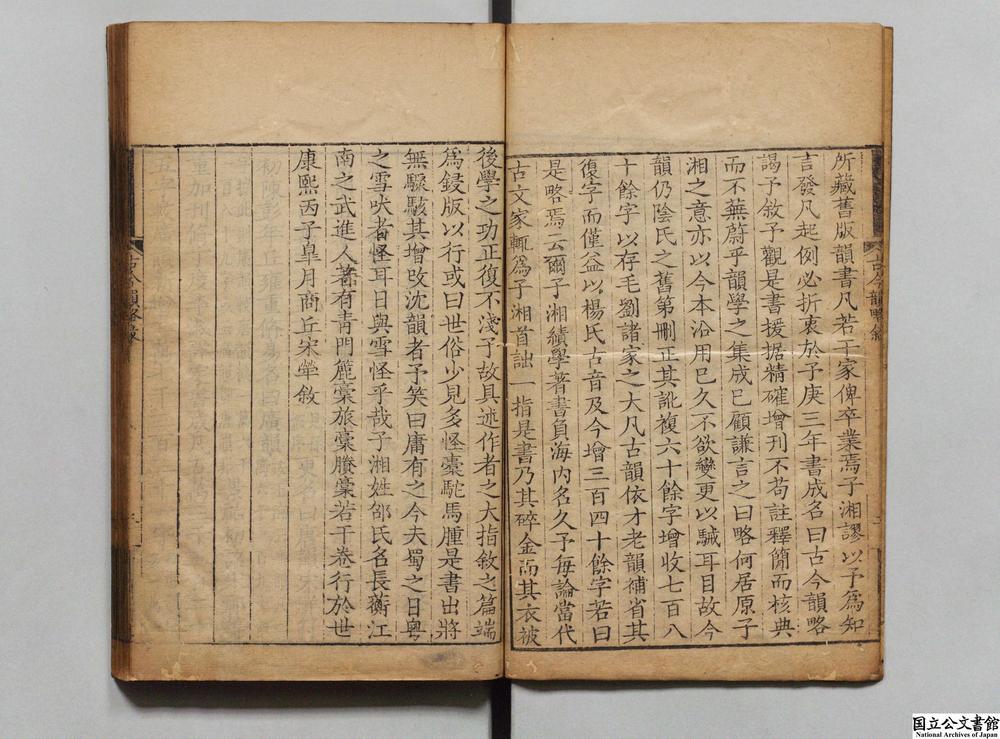 所藏舊版韻書凡若干家俾卒業焉子湘謬以予爲知
言發凡起例必折衷於予庚三年書成名曰古今韻略
謁予敘予觀是書援据精確增刊不苟註釋簡而核典
而不蕪蔚乎韻學之集成已顧謙言之曰略何居原子
湘之意亦以今本沿用已久不欲變更以駴耳目故今
韻仍陰氏之舊第刪正其訛複六十餘字增收七百八
十餘字以存毛劉諸家之大凡古韻依才老韻補省其
復字而僅益以楊氏古音及今增三百四十餘字若曰
是略焉云爾子湘績學著書負海内名久予每論當代
古文家輒爲子湘首詘一指是書乃其碎金而其衣被
後學之功正復不淺予故具述作者之大指敘之篇端
爲鋟版以行或曰世俗少見多怪橐駝馬腫是書出將
無驟駭其增改沈韻者予笑曰庸有之今夫蜀之日粵
之雪吠者怪耳日與雪怪乎哉子湘姓邵氏名長蘅江
南之武進人著有青門簏稾旅稾賸稾若干卷行於世
康熙丙子皐月商丘宋犖敘
古今韻略敘
国立公文書館
National Archives of Japan